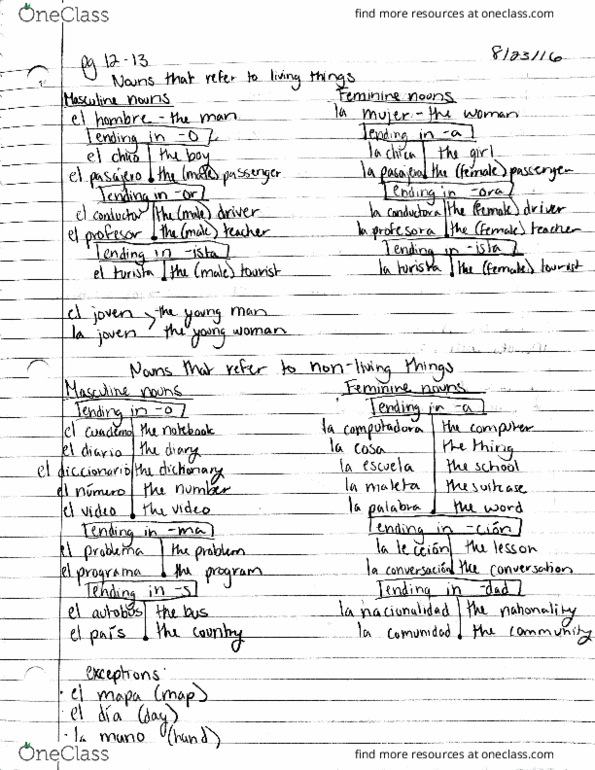 OneClass find more resources at oneclass.com
pg 12-13 8/23/16
Nouns that refer to living things
Masculine nouns Feminine nouns
el hombre - the man la mujer - the woman
Ending in -o Ending in -a
el chico the boy la chica the girl
el pasajero the (male) passenger la pasajera the (female) passenger
Ending in -or Ending in -ora
el conductor the (male) driver la conductora the (female) driver
el profesor the (male) teacher la profesora the (female) teacher
Ending in -ista Ending in -ista
el turista the (male) tourist la turista the (female) tourist
el joven the young man
la joven the young woman
Nouns that refer to non-living things
Masculine nouns Feminine nouns
Ending in -o Ending in -a
el cuaderno the notebook la computadora the computer
el diario the diary la cosa the thing
el diccionario the dictionary la escuela the school
el número the number la maleta the suitcase
el video the video la palabra the word
Ending in -ma Ending in -ción
el problema the problem la lección the lesson
el programa the program la conversación the conversation
Ending in -s Ending in -dad
el autobús the bus la nacionalidad the nationality
el país the country la comunidad the community
exceptions:
· el mapa (map)
· el día (day)
· la mano (hand)
OneClass find more resources at oneclass.com